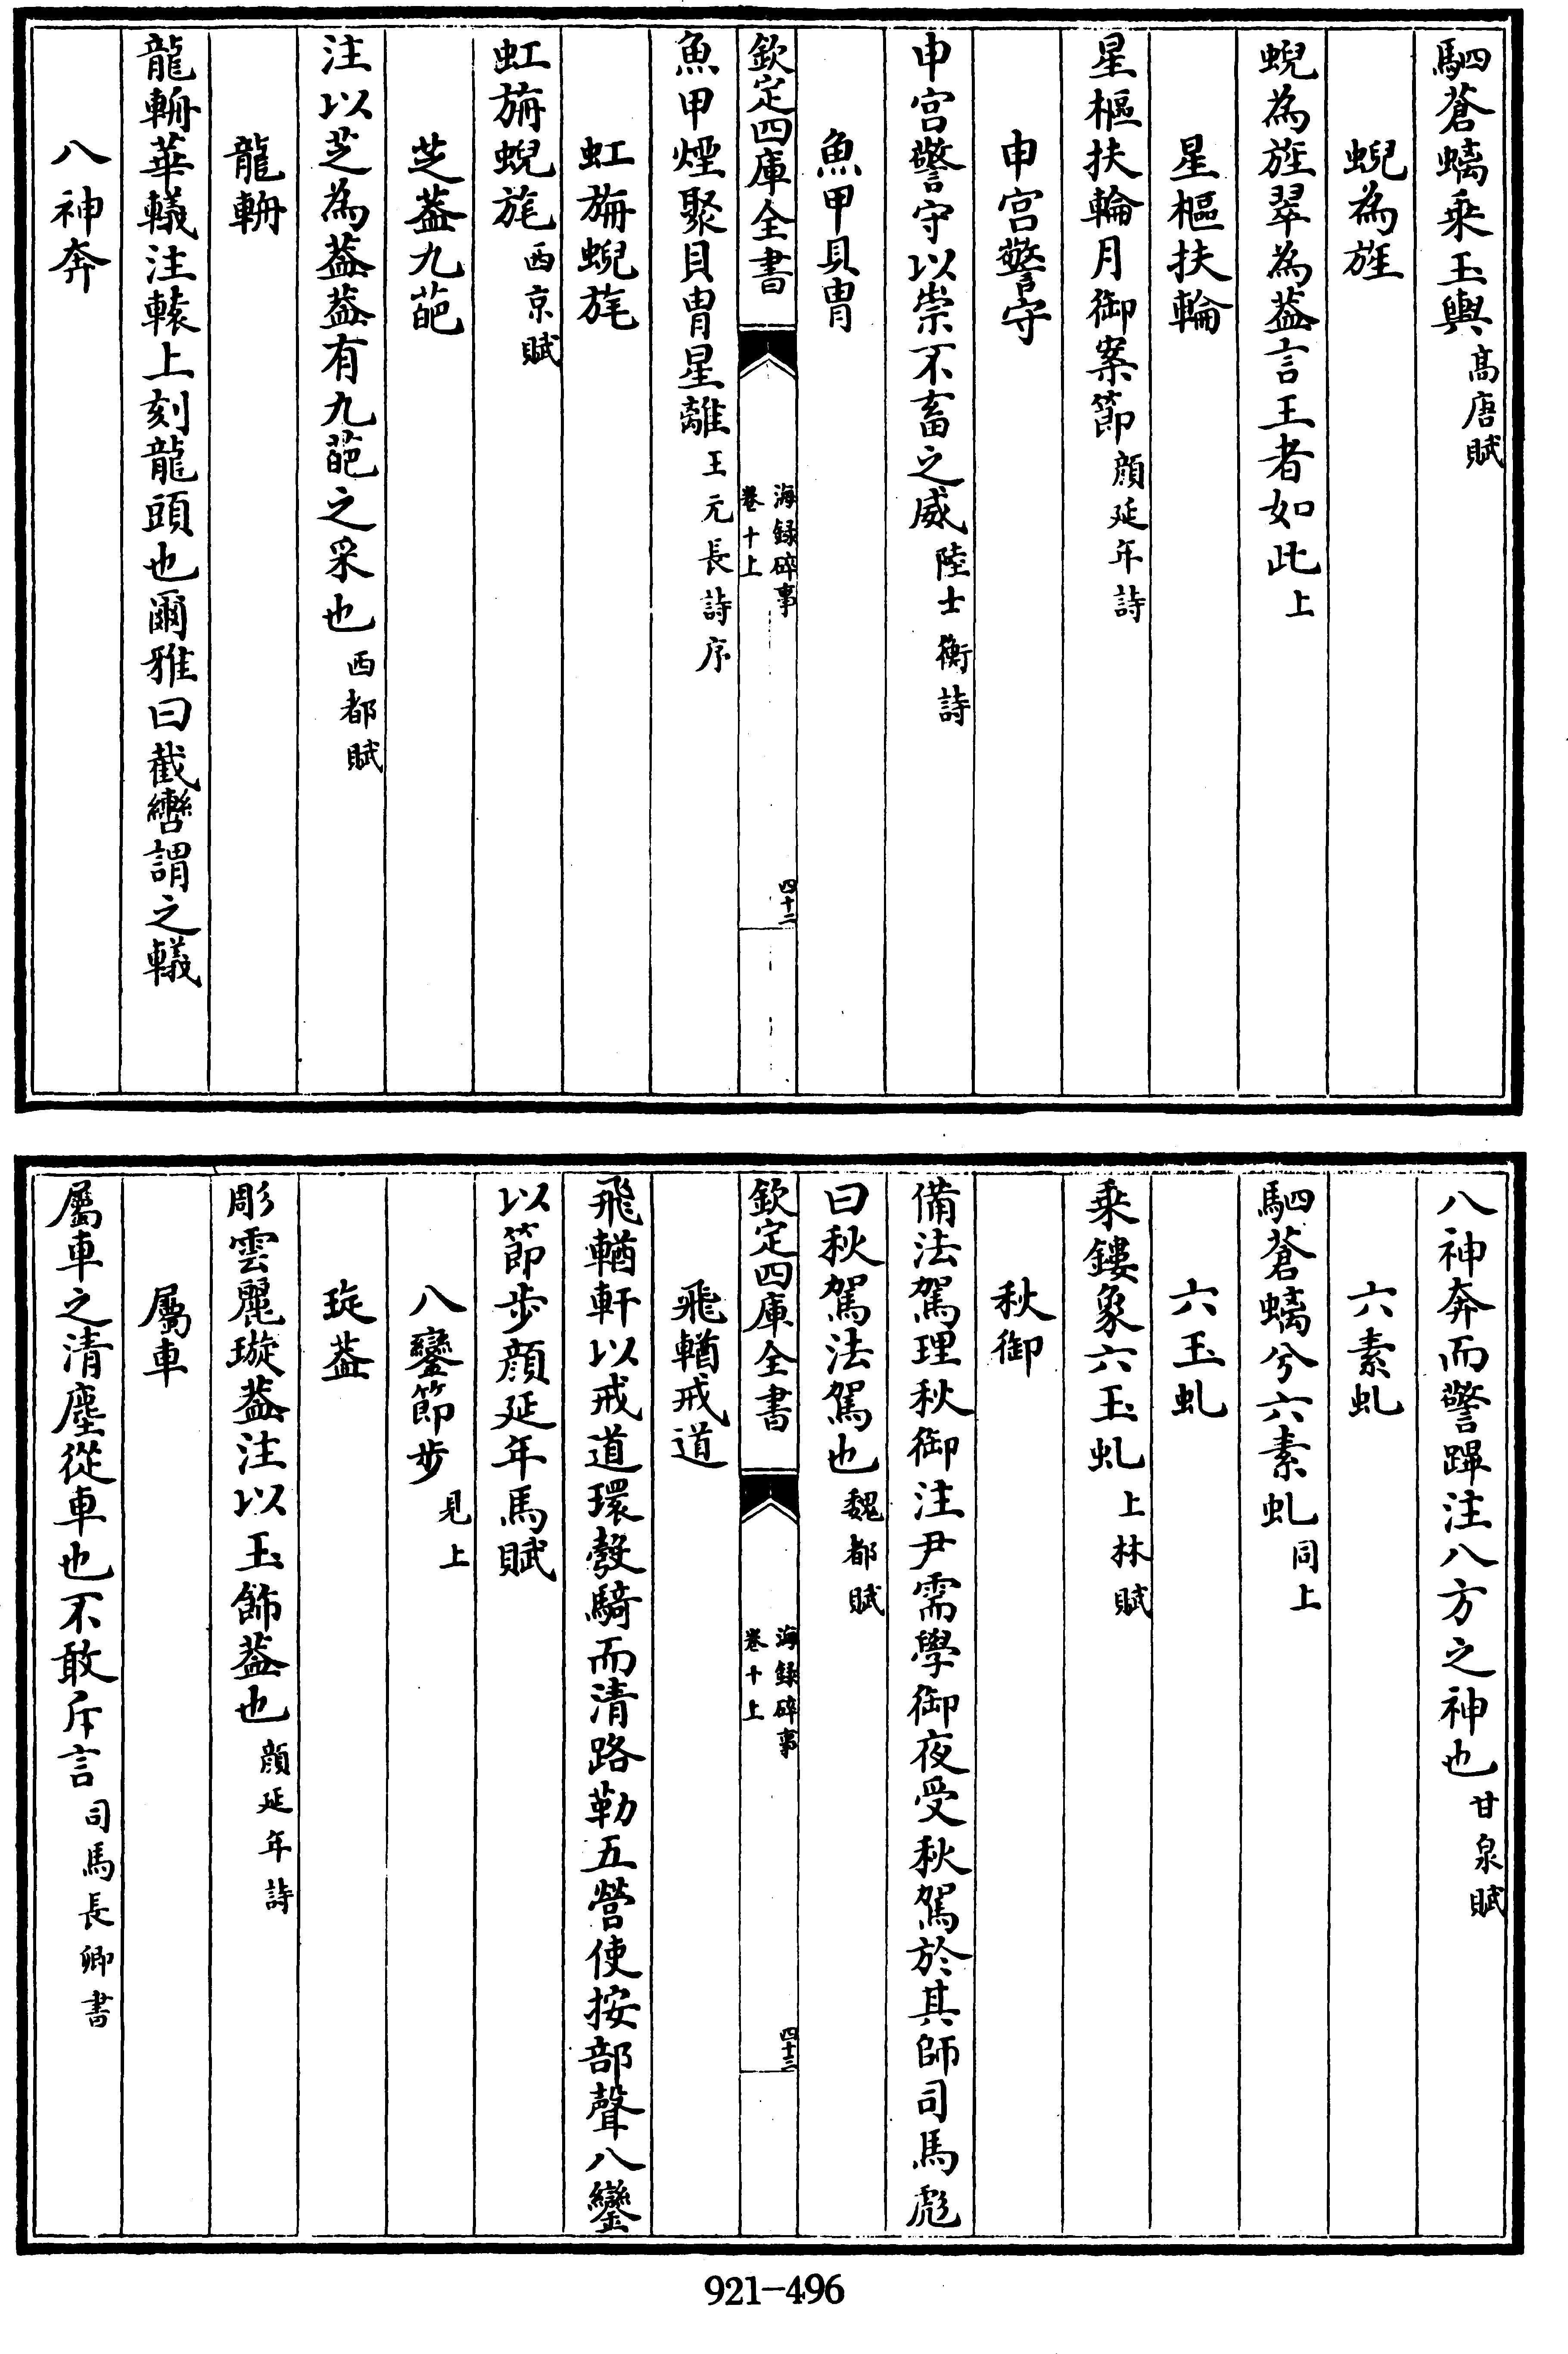 駟蒼螭乘玉輿高唐賦
蜺為旌
蜺為旌翠為葢言王者如此上
星樞扶輪
星樞扶輪月御案節顔延年詩
申宫警守
申宫警守以崇不畜之威陸士衡詩
魚甲貝胄
欽定四庫全書
海録碎事
卷十上
四十二
魚甲煙聚貝胄星離王元長詩序
虹旃蜺旄
虹旃蜺旄西京賦
芝葢九葩
注以芝為葢葢有九葩之采也西都賦
龍輈
龍輈華轙注轅上刻龍頭也爾雅曰截轡謂之轙
八神奔
八神奔而警蹕注八方之神也甘泉賦
六素虬
駟蒼螭兮六素虬同上
六玉虬
乘鏤象六玉虬上林賦
秋御
備法駕理秋御注尹需學御夜受秋駕於其師司馬彪
曰秋駕法駕也魏都賦
欽定四庫全書
海録碎事
卷十上
四十三
飛輶戒道
飛輶軒以戒道環彀騎而清路勒五營使按部聲八鑾
以節步顔延年馬賦
八鑾節步見上
琁葢
彫雲麗璇葢注以玉飾葢也顔延年詩
屬車
屬車之清塵從車也不敢斥言司馬長卿書
921-496